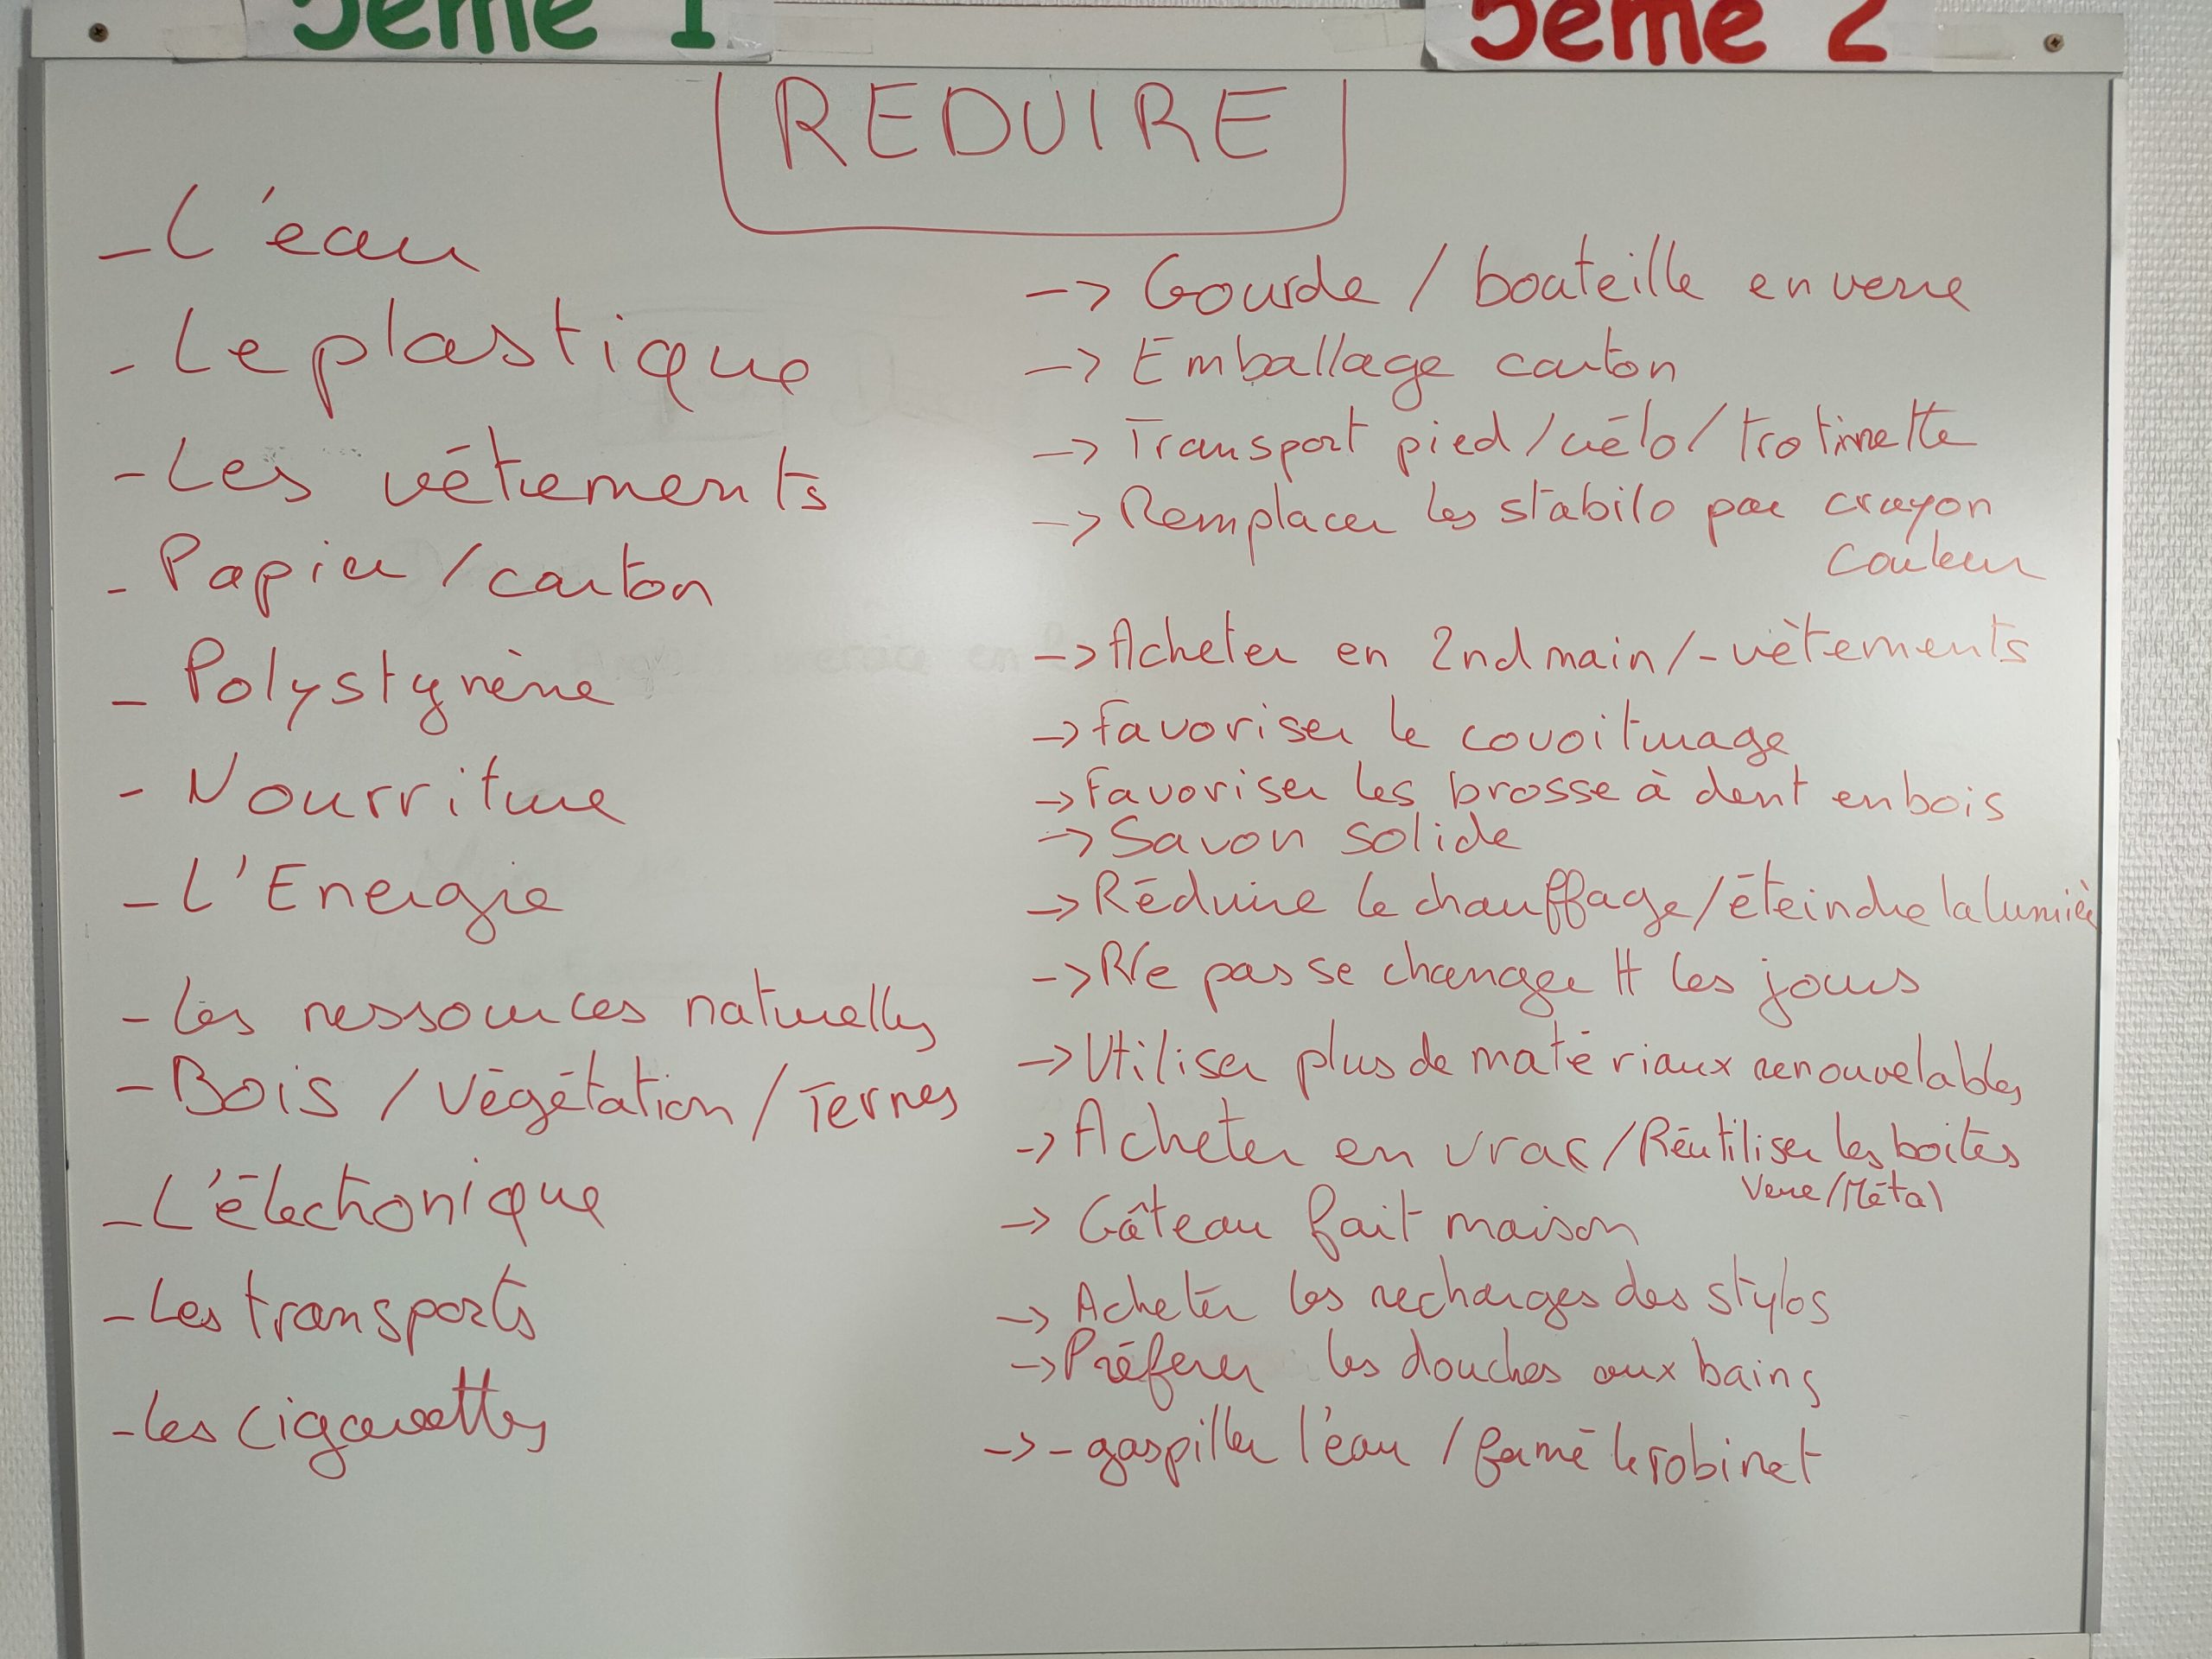 5ème 1
5ème 2
REDUIRE
- L'eau
- Le plastique
- Les vêtements
- Papier / carton
- Polystyrène
- Nourriture
- L'Energie
- Les ressources naturelles
- Bois / Végétation / Terres
- L'électronique
- Les transports
- Les cigarettes
-> Gourde / bouteille en verre
-> Emballage carton
-> Transport pied / vélo / trotinnette
-> Remplacer les stabilo par crayon
couleur
-> Acheter en 2nd main / - vètements
-> Favoriser le covoiturage
-> Favoriser les brosse à dent en bois
-> Savon solide
-> Réduire le chauffage / éteindre la lumière
-> Ne pas se changer tt les jours
-> Utiliser plus de matériaux renouvelables
-> Acheter en vrac / Réutiliser les boites
Verre / Métal
-> Gâteau fait maison
-> Acheter les recharges des stylos
-> Préferer les douches aux bains
-> - gaspiller l'eau / fermé le robinet